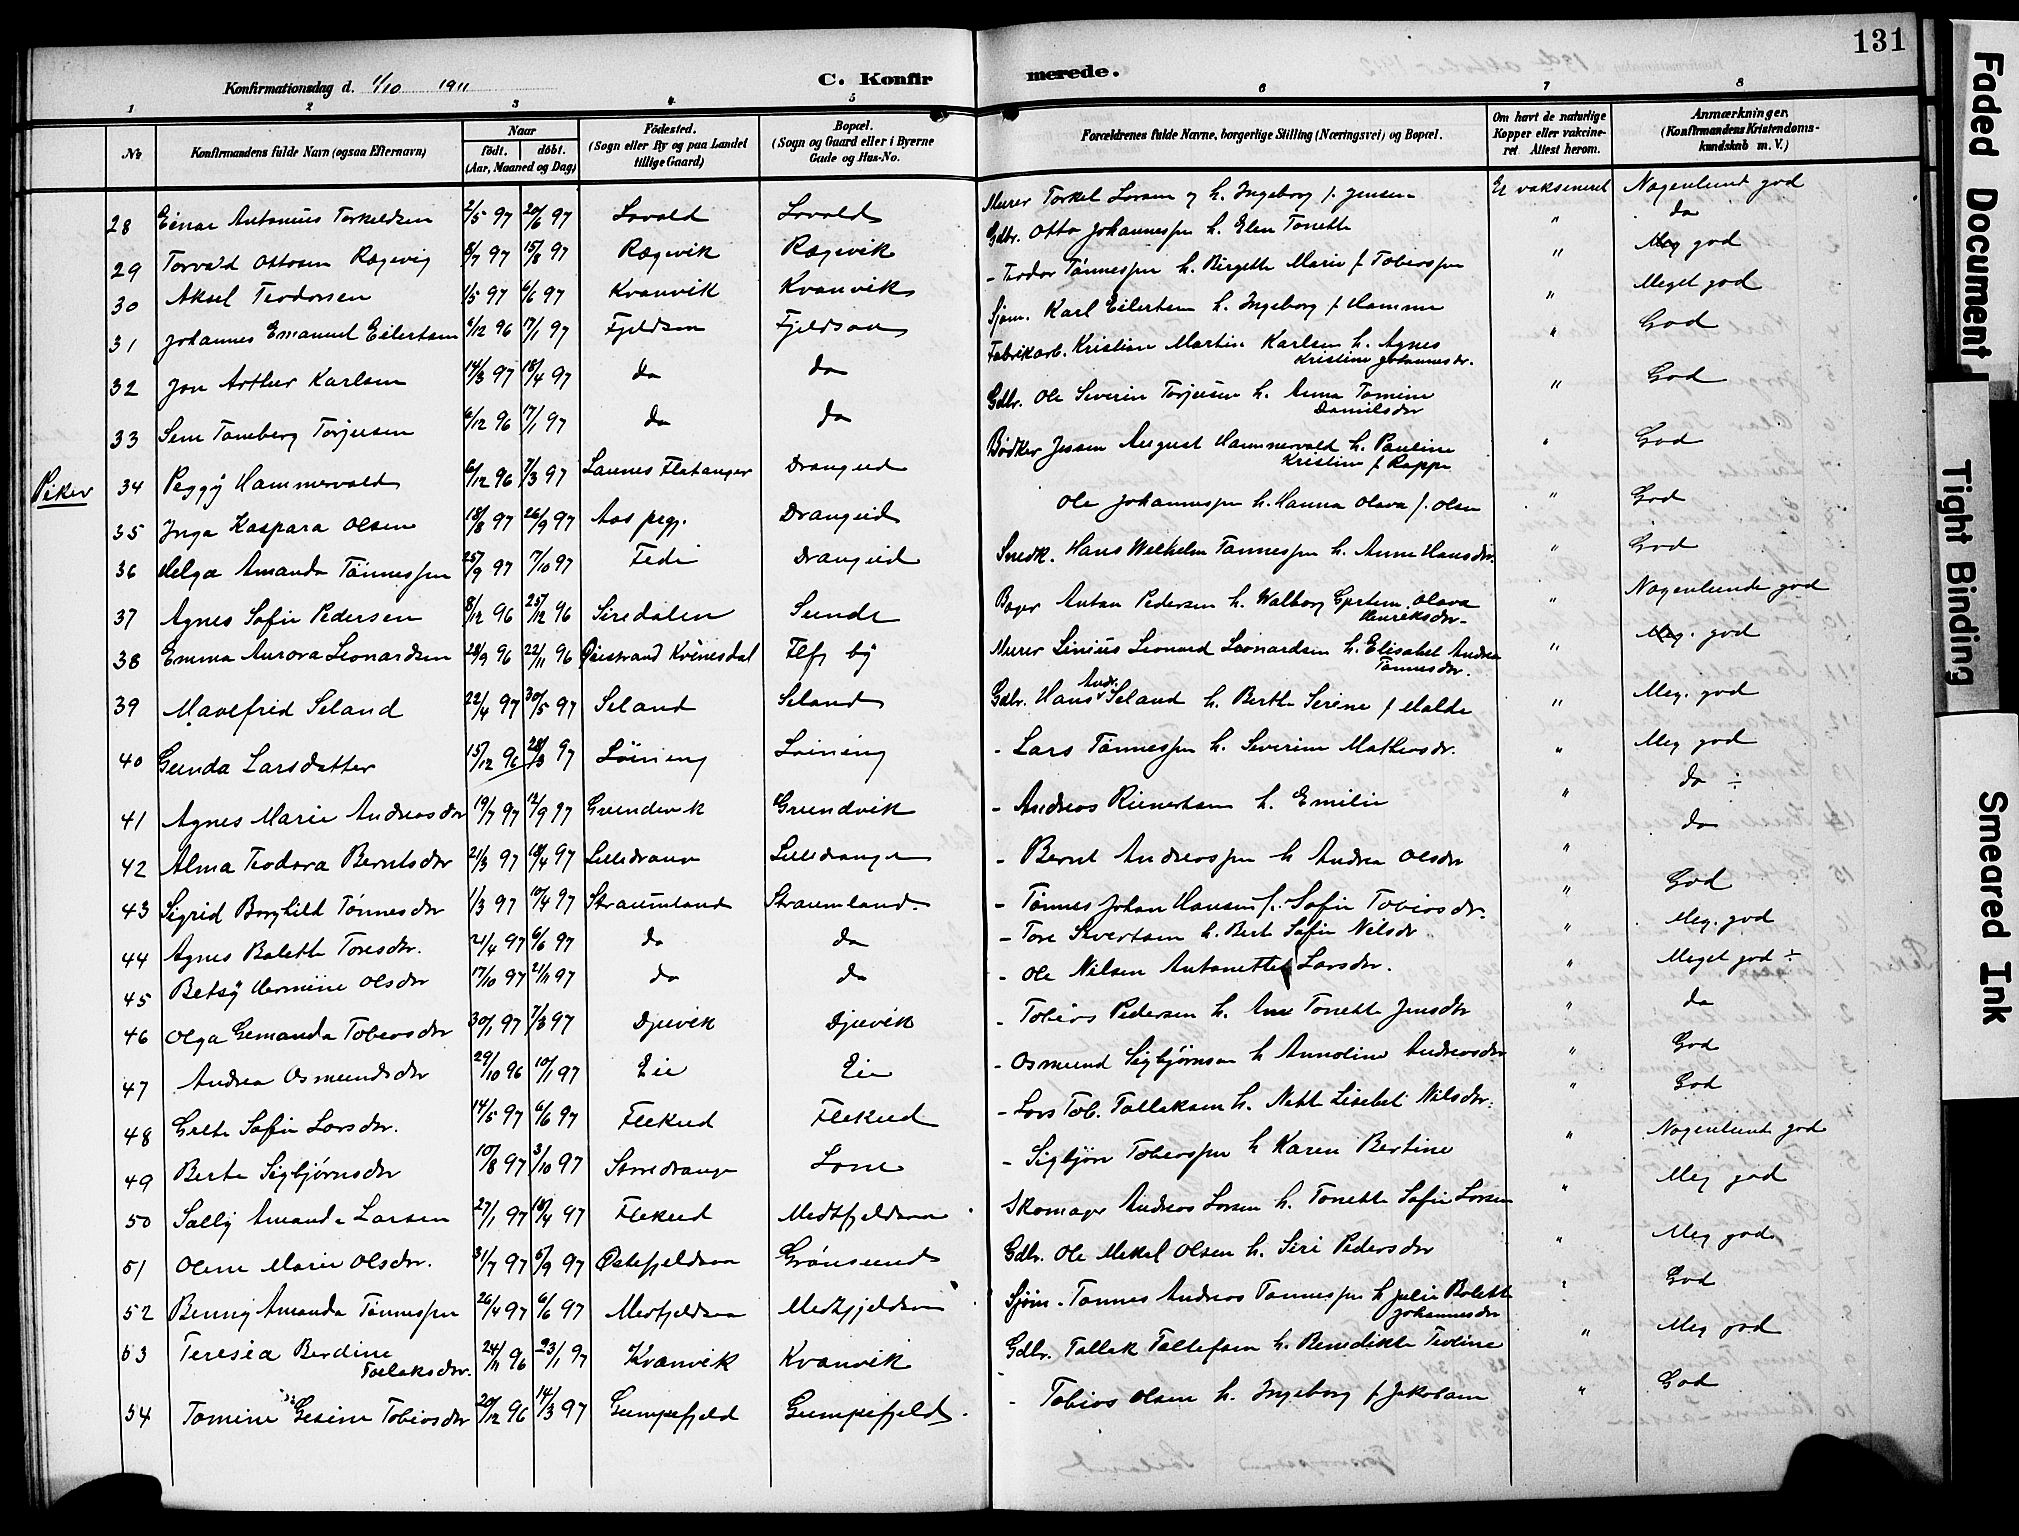 131
Konfirmationsdag d. 1/10 1911
C. Konfirmerede.
1 2 3 4 5 6 7 8
No
Konfirmandens fulde Navn (ogsaa Efternavn)
Naar
født. døbt.
(Aar, Maaned og Dag)
Fødested.
(Sogn eller By og paa Landet
tillige Gaard)
Bopæl.
(Sogn og Gaard eller i Byerne
Gade og Hus-No.
Forældrenes fulde Navne, borgerlige Stilling (Næringsvei) og Bopæl.
Om havt de naturlige
Kopper eller vakcine-
ret Attest herom.
Anmærkninger.
(Konfirmandens Kristendoms-
kundskab m. V.)
28 Einar Antonius Torkeldsen 2/5 97 20/6 97 Lovald Lovald Murer Torkel Larsen og h. Ingeborg f. Jensen Er vaksineret Nogenlund god
29 Torvald Ottosen Rægevig 8/7 97 15/8 97 Rægevik Rægevik Gdbr. Otto Johannessen h. Elen Tonette " da
30 Aksel Teodorsen 1/5 97 6/6 97 Kvanvik Kvanvik - Teodor Tønnessen h. Birgette Marie f Tobiassen " Meg god
31 Johannes Emanuel Eilertsen 6/12 96 17/1 97 Fjeldsaa Fjeldsaa Sjøm. Karl Eilertsen h. Ingeborg f Hamme " Meget god
32 Jon Arthur Karlsen 14/3 97 18/4 97 da da Fabrikarb. Kristian Martin Karlsen h. Agnes
Kristine Johannesdr. " God
33 Sem Tomberg Torjusen 6/12 96 17/1 97 da da Gdbr. Ole Severin Torjusen h. Anna Tomine
Danielsdr " God
Piker
34 Peggy Hammervold 6/12 96 7/3 97 Launes Flatanger Drangeid Bødker Jessen August Hammervold h. Pauline
Kristine f Rappe " God
35 Inga Kaspara Olsen 18/8 97 26/9 97 Aas Drangeid Ole Johannessen h. Hanna Olava f. Olsen " God
36 Helga Amanda Tønnessen 25/9 97 7/10 97 Fede Drangeid Snedk. Hans Wilhelm Tønnessen h. Anne Hansdr. " God
37 Agnes Sofie Pedersen 8/12 96 25/12 96 Siredalen Sunde Anton Pedersen h. Walborg Olava
Henriksdr. " Nogenlunde god
38 Emma Aurora Leonardsen 28/9 96 22/11 96 Øiestrand Kvinesdal Flf by Murer Linius Leonard Leonardsen h. Elisabet Andrea
Tønnesdr. " Meg. god
39 Mavefrid Seland 22/4 97 30/5 97 Seland Seland Gdbr. Hans Andr. Seland h. Berthe Serine f Malde " Meg. god
40 Gunda Larsdatter 15/12 96 28/3 97 Løining Loining - Lars Tønnessen h. Severine Mathiasdr. " Meg god
41 Agnes Marie Andreasdr 19/7 97 12/9 97 Grundvik Grundvik - Andreas Rienertsen h. Emilie " da ÷
42 Alma Teodora Berntsdr 21/3 97 18/4 97 Lilledrange Lilledrange - Bernt Andreassen h Andrea Olsdr " da
43 Sigrid Borghild Tønnesdr 1/3 97 10/4 97 Straumland Straumland. - Tønnes Johan Hansen f. Sofie Tobiasdr. " God
44 Agnes Bolette Toresdr. 21/4 97 6/6 97 do da - Tore Sivertsen h. Bert Sofie Nilsdr " Meg. god
45 Betsy Hermine Olsdr 17/10 97 21/11 97 da da - Ole Nilsen Antonette Larsdr. " Meget god ÷
46 Olga Gemanda Tobiasdr 30/1 97 7/3 97 Djuvik Djuvik - Tobias Pedersen h. Ane Tonette Jensdr " da
47 Andrea Osmundsdr 29/10 96 10/1 97 Eie Eie - Osmund Sigbjørnsen h Annoline Andreasdr " God
48 Grete Sofie Larsdr. 14/5 97 6/6 97 Flekud Flekud - Lars Tob. Tolleksen h. Nette Lisebet Nilsdr. " God
49 Berte Sigbjørnsdr 10/8 97 3/10 97 Storedrange Lone - Sigbjørn Tobiassen h Karen Bertine " Nogenlunt god
50 Sally Amanda Larsen 27/1 97 18/4 97 Flekud Medfjeldsaa Skomager Andreas Larsen h. Tonette Sofie Larsen " Meg god
51 Oline Marie Olsdr. 31/7 97 5/9 97 Østefjeldsaa Grønsund Gdbr. Ole Mekal Olsen h. Siri Pedersdr " Meg god
52 Benny Amanda Tønnessen 26/4 97 6/6 97 Medfjeldsaa Medfjeldsaa Sjøm. Tønnes Andreas Tønnessen h Julie Bolette
Johannesdr " God
53 Teresia Berdine
Tollaksdr. 24/11 96 23/1 97 Kvanvik Kvanvik Gdbr. Tollak Tollefsen h. Benedikte Teoline " Meg god
54 Tomine Gesine Tobiasdr 20/12 96 14/3 97 Gumpefjeld Gumpefjeld. - Tobias Olsen h. Ingeborg f Jakobsen " God
Faded Document
Tight Binding
Smeared Ink